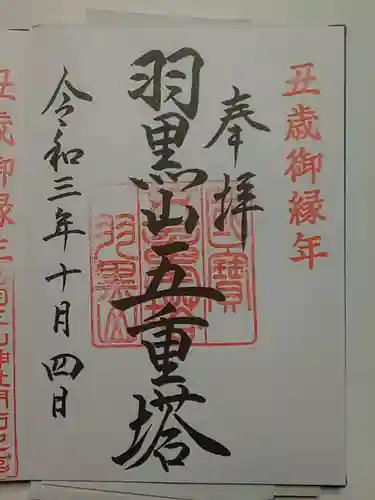 丑歳御縁年
奉拝
羽黒山五重塔
令和三年十月四日
丑歳御縁年